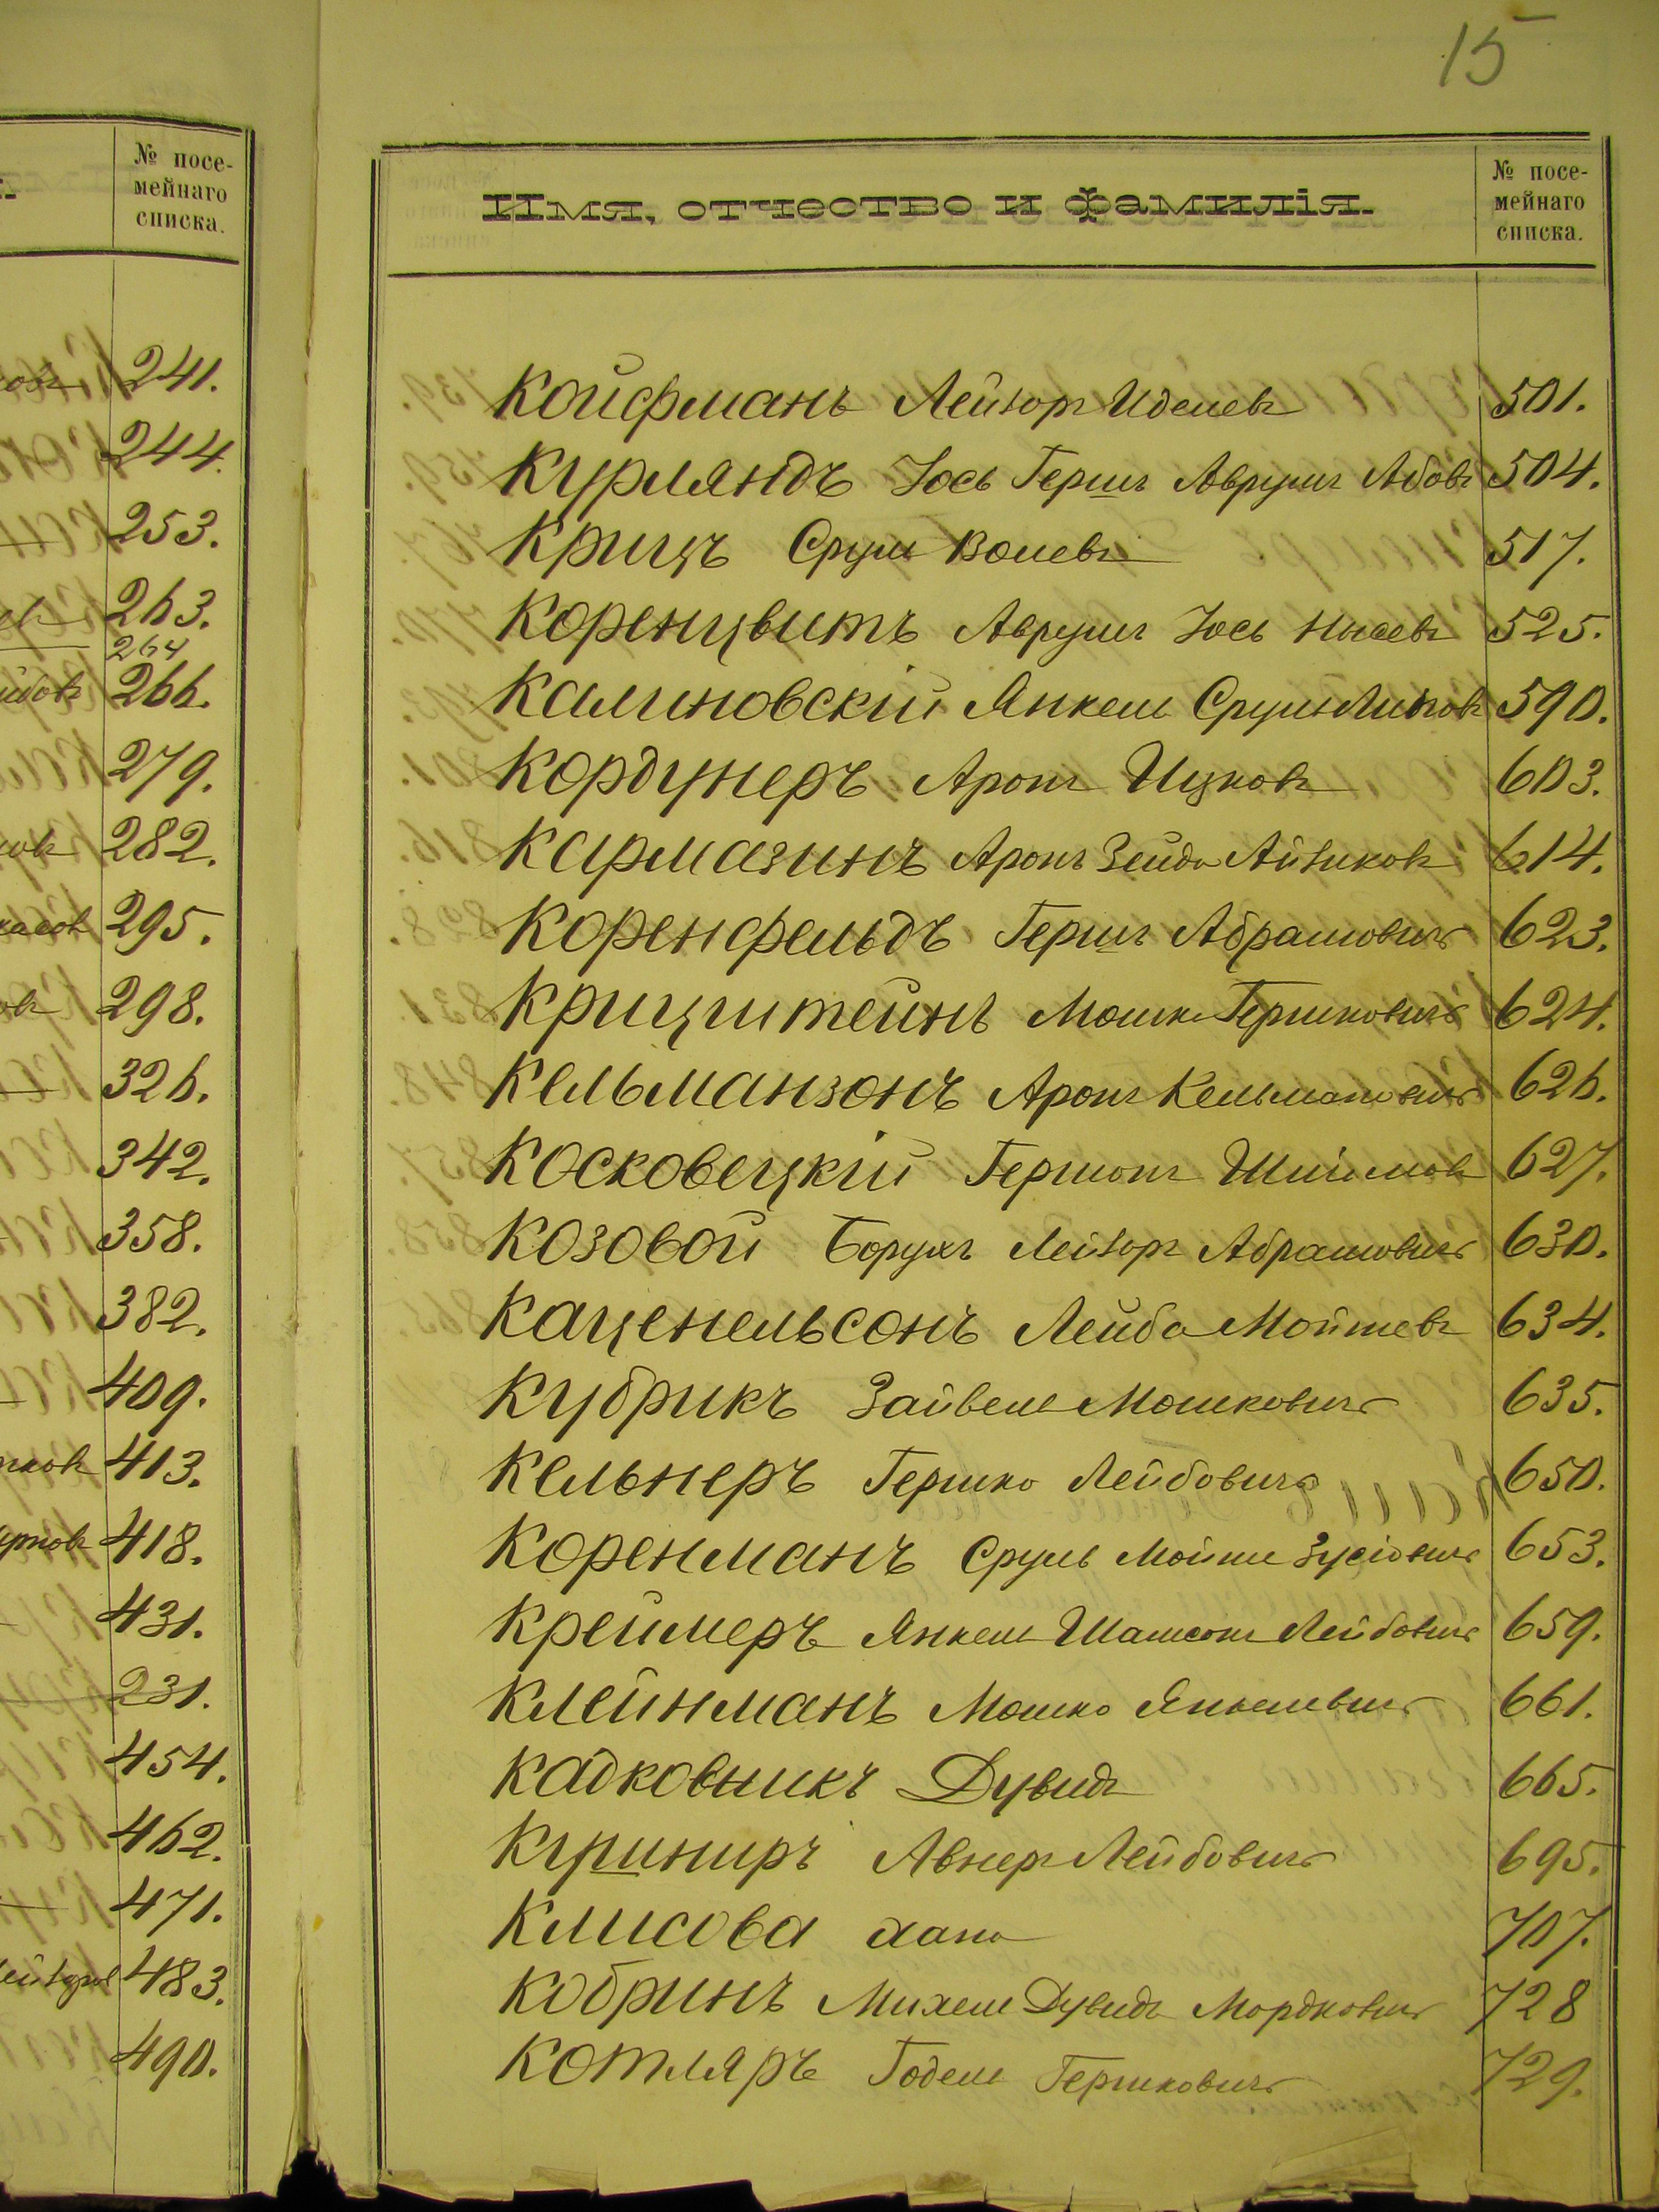 15
№ посе-
мейнаго
списка.
241.
244.
253.
263.
264
266.
279.
282.
295.
298.
326.
342.
358.
382.
409.
413.
418.
431.
231.
454.
462.
471.
483.
490.
Имя, отчество и фамилія.
№ посе-
мейнаго
списка.
Койфманъ Лейзоръ Иделевъ 501.
Курляндъ Іось Гершъ Аврумъ Абовъ 504.
Крицъ Сруль Волевъ 517.
Коренцвитъ Аврумъ Іось 525.
Калиновскій Янкель Сруль 590.
Кордунеръ Аронъ Ицковъ 603.
Кармазинъ Аронъ Зейда Айзиковъ 614.
Коренфельдъ Гершъ Абрамовичъ 623.
Крицштейнъ Мошко Гершковичъ 624.
Кельманзонъ Аронъ Кельмановичъ 626.
Косковецкій Гершонъ 627.
Козовой Борухъ Лейзоръ Абрамовичъ 630.
Каценельсонъ Лейба Мойшевъ 634.
Кубрикъ Зайвель Мошковичъ 635.
Кельнеръ Гершко Лейбовичъ 650.
Коренманъ Сруль Мойше Зусіовичъ 653.
Креймеръ Янкель Шамсонъ Лейбовичъ 659.
Клейнманъ Мошко Янкелевичъ 661.
Кадковникъ Дувидъ 665.
Кушниръ Авнеръ Лейбовичъ 695.
Клисова Хана 707.
Кобринъ Михель Дувидъ Мордковичъ 728
Котляръ Годель Гершковичъ 729.